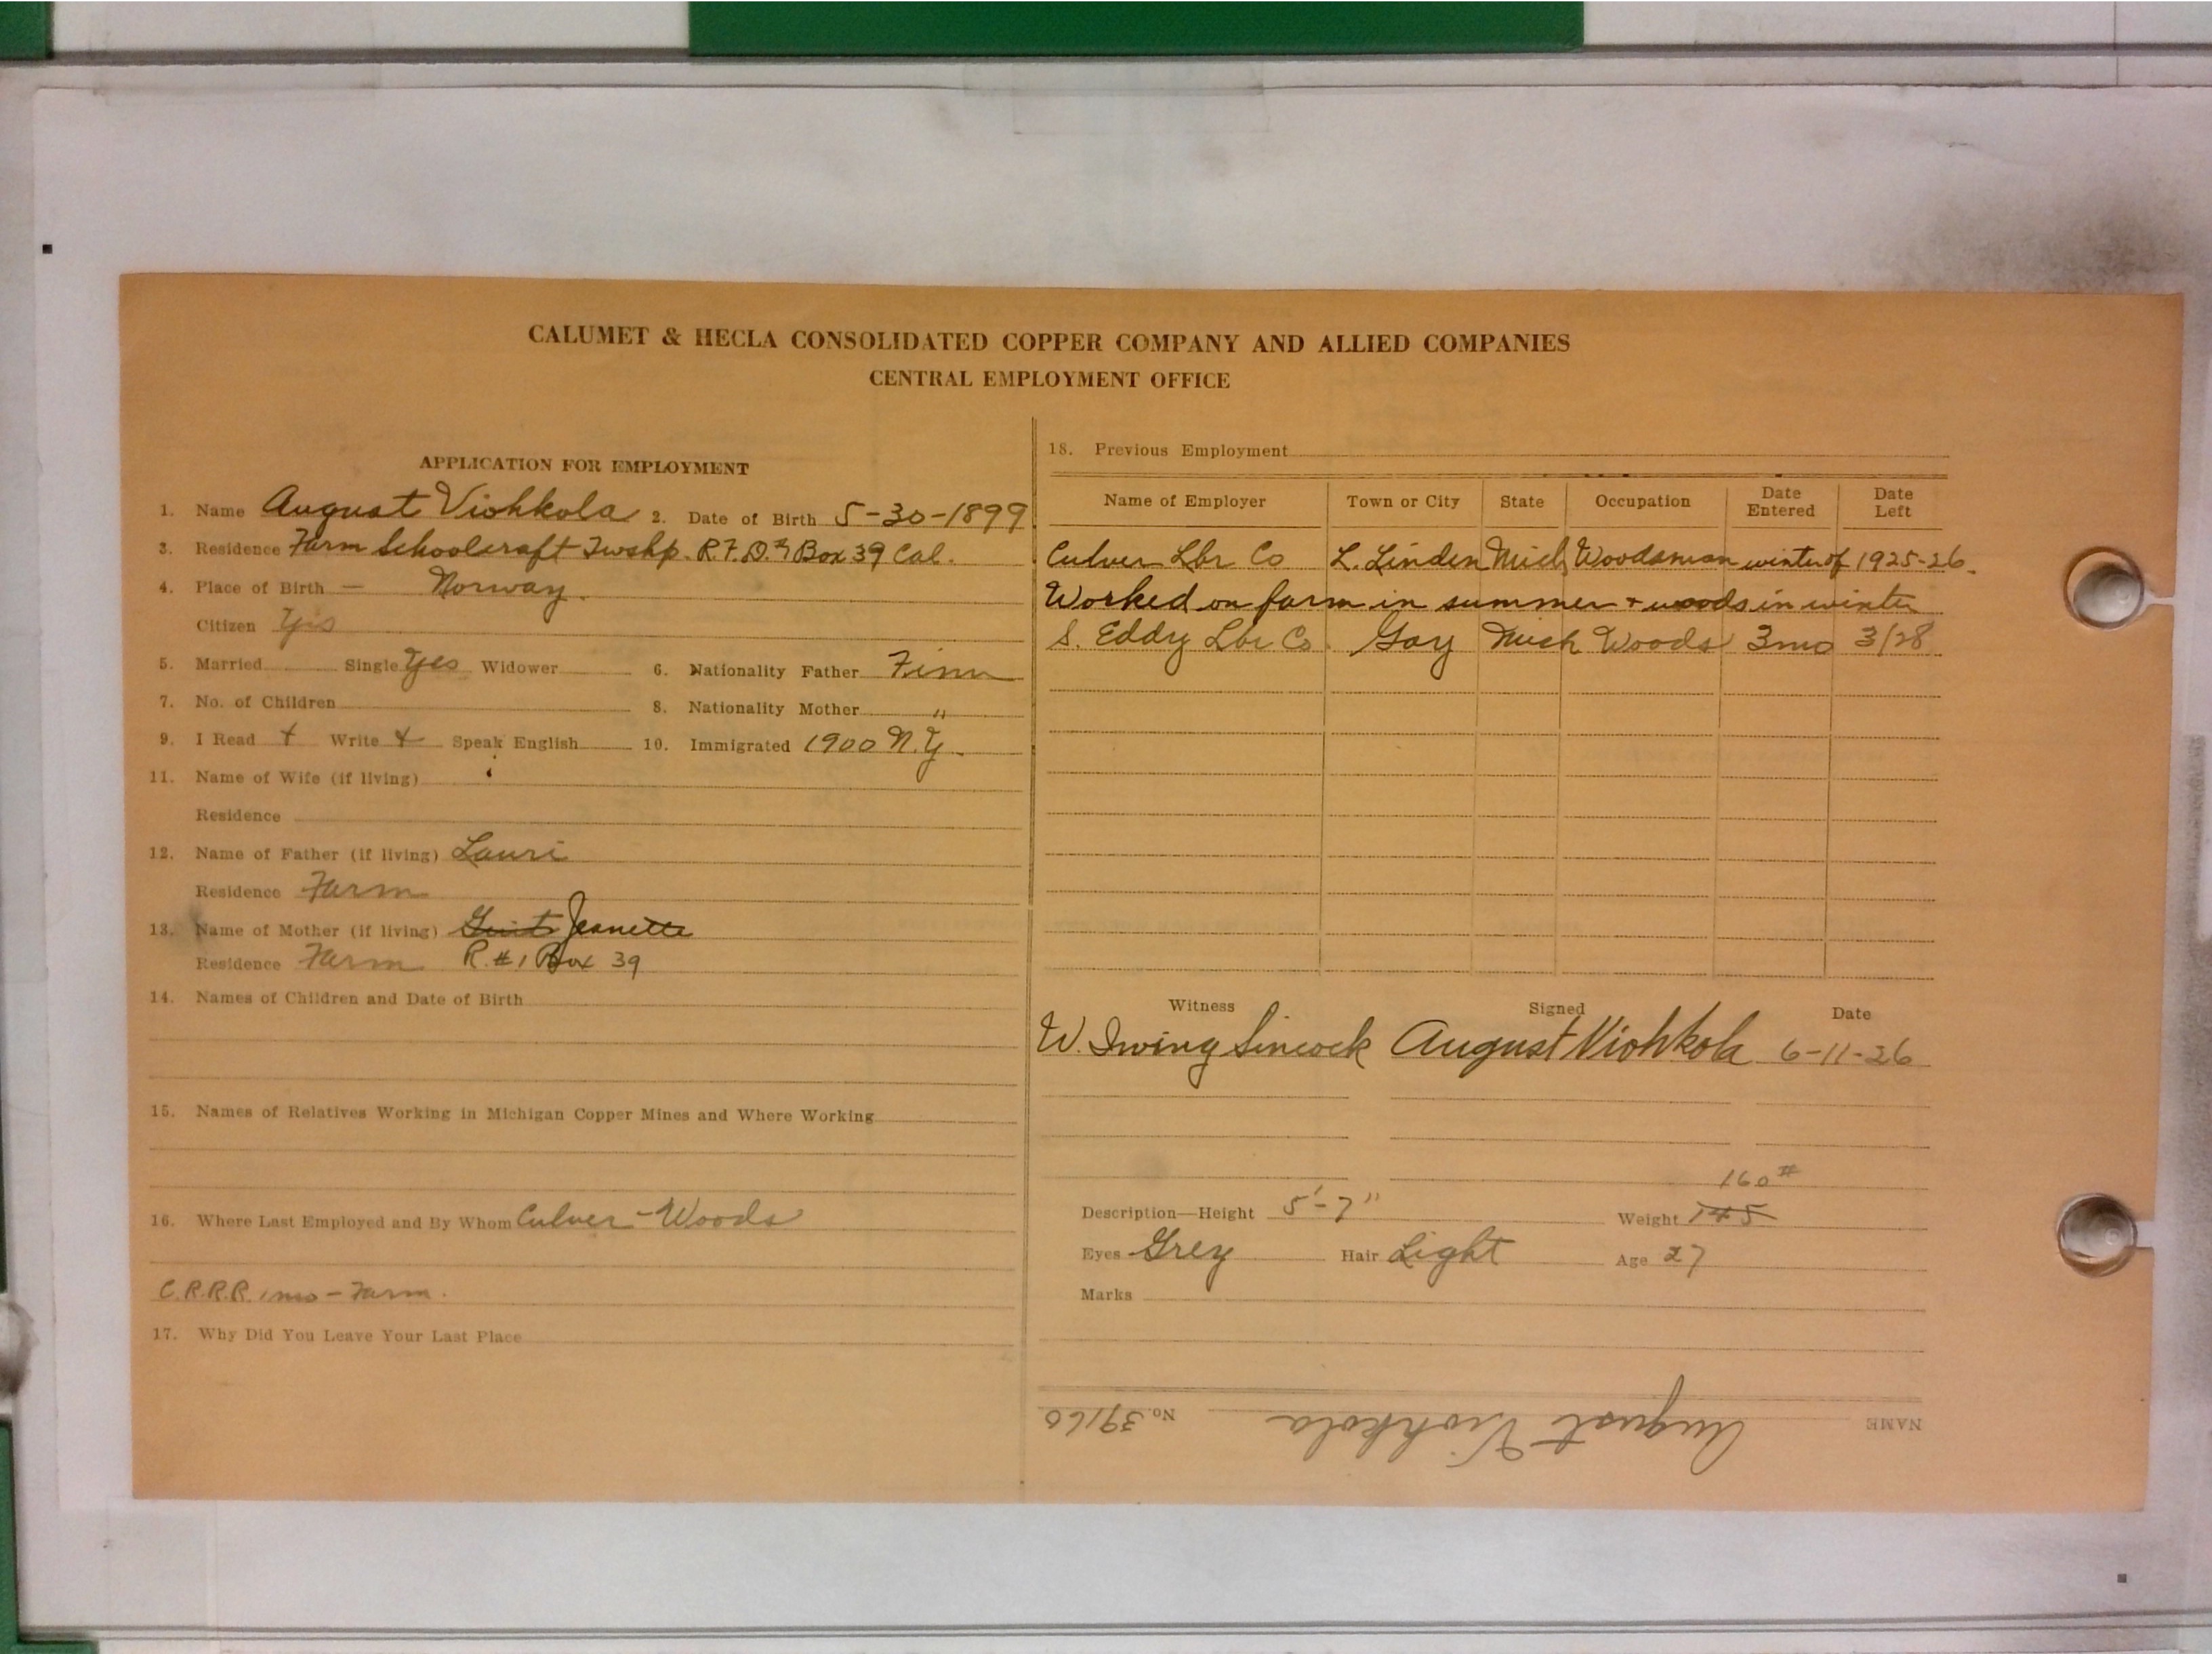 CALUMET & HECLA CONSOLIDATED COPPER COMPANY AND ALLIED COMPANIES
CENTRAL EMPLOYMENT OFFICE
APPLICATION FOR EMPLOYMENT
1. Name August Viohkola 2. Date of Birth 5-30-1899
3. Residence Farm Schoolcraft Twshp. R.F.D. Box 39 Cal.
4. Place of Birth — Norway.
Citizen Yes
5. Married Single Yes Widower 6. Nationality Father Finn
7. No. of Children 8. Nationality Mother "
9. I Read + Write + Speak English 10. Immigrated 1900 N.Y.
11. Name of Wife (if living)
Residence
12. Name of Father (if living) Lauri
Residence Farm
13. Name of Mother (if living) Jeanette
Residence Farm R. #1 Box 39
14. Names of Children and Date of Birth
15. Names of Relatives Working in Michigan Copper Mines and Where Working
16. Where Last Employed and By Whom Culver - Woods
C.R.R.R. 1 mo - Farm.
17. Why Did You Leave Your Last Place
18. Previous Employment
Name of Employer Town or City State Occupation Date Entered Date Left
Culver Lbr Co L. Linden Mich Woodsman winter of 1925-26.
Worked on farm in summer + woods in winter
S. Eddy Lbr Co. Gay Mich Woods 3 mo 3/28
Witness Signed Date
W. Irving Sincock August Viohkola 6-11-26
160#
Description—Height 5'-7" Weight 145
Eyes Grey Hair Light Age 27
Marks
NAME August Viohkola No. 39160